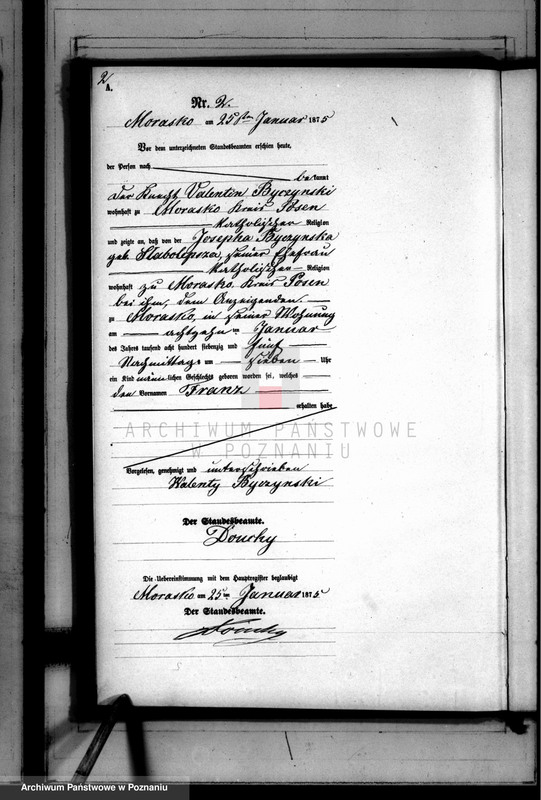 2
A.
Nr. 2.
Morasko am 25ten Januar 1875
Vor dem unterzeichneten Standesbeamten erschien heute,
der Person nach
bekannt
der Knecht Valentin Byczynski
wohnhaft zu Morasko Kreis Posen
katholischer Religion
und zeigte an, daß von der Josepha Byczynska
geb. Slabolepsza, seiner Ehefrau
katholischer Religion
wohnhaft zu Morasko Kreis Posen
bei ihm, dem Anzeigenden
zu Morasko, in seiner Wohnung
am achtzehnten Januar
des Jahres tausend acht hundert siebenzig und fünf
Nachmittags um sieben Uhr
ein Kind männlichen Geschlechts geboren worden sei, welches
den Vornamen Franz
erhalten habe
ARCHIWUM PAŃSTWOWE
W POZNANIU
Vorgelesen, genehmigt und unterschrieben
Walenty Byczynski
Der Standesbeamte.
Douchy
Die Uebereinstimmung mit dem Hauptregister beglaubigt
Morasko am 25ten Januar 1875
Der Standesbeamte.
Douchy
Archiwum Państwowe w Poznaniu